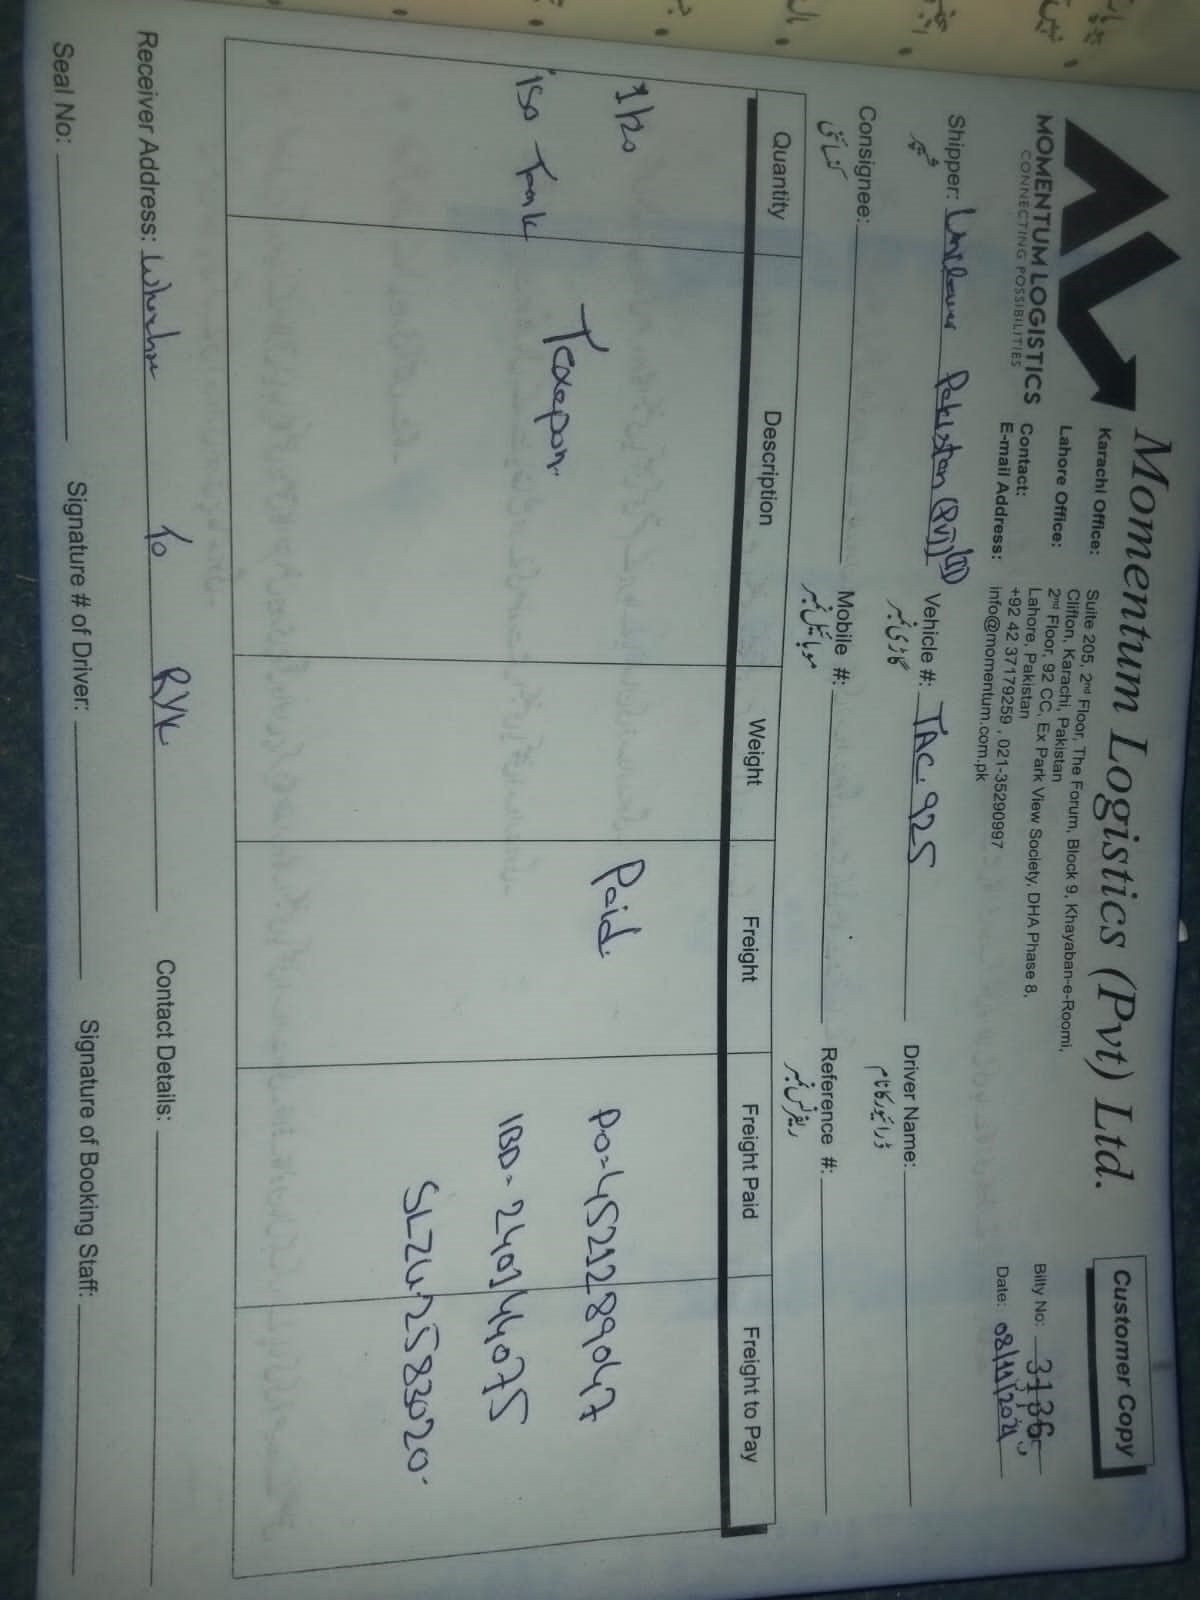 Momentum Logistics (Pvt) Ltd.
Customer Copy
MOMENTUM LOGISTICS
CONNECTING POSSIBILITIES
Karachi Office: Suite 205, 2nd Floor, The Forum, Block 9, Khayaban-e-Roomi,
Clifton, Karachi, Pakistan
Lahore Office: 2nd Floor, 92 CC, Ex Park View Society, DHA Phase 8,
Lahore, Pakistan
Contact: +92 42 37179259 , 021-35290997
E-mail Address: info@momentum.com.pk
Bilty No: 3136
Date: 08/11/2021
Shipper: Unilever Pakistan (PVT)
شپر
Vehicle #: TAC.925
گاڑی نمبر
Driver Name:
ڈرائیور کا نام
Consignee:
کنسائنی
Mobile #:
موبائیل نمبر
Reference #:
ریفرنس نمبر
Quantity Description Weight Freight Freight Paid Freight to Pay
1/20 Texapon. Paid. PO=4521289047
ISO Tank IBD-240144075
SLZU-2583020
Receiver Address: To RYK
Contact Details:
Seal No:
Signature # of Driver:
Signature of Booking Staff: